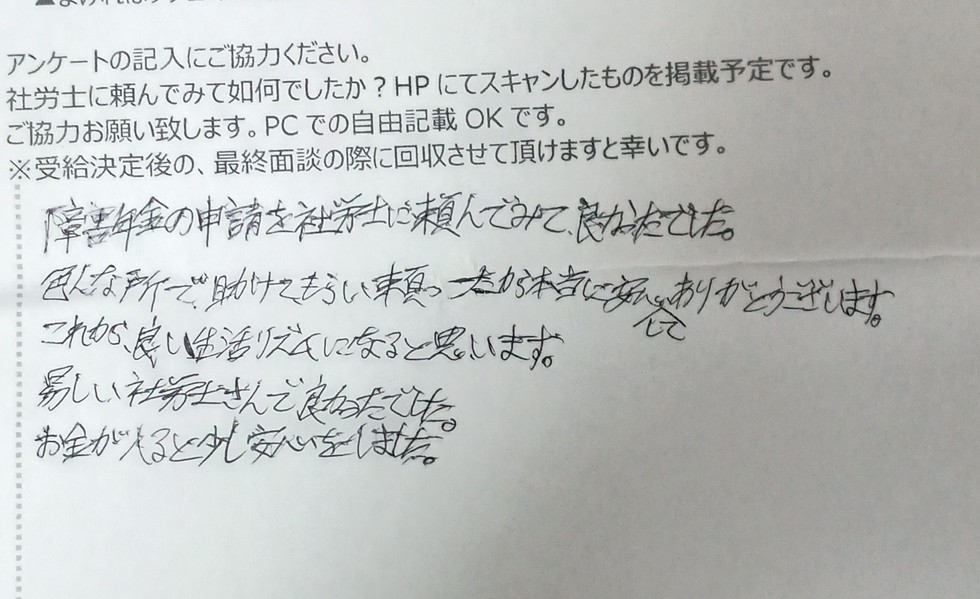 アンケートの記入にご協力ください。
社労士に頼んでみて如何でしたか？HPにてスキャンしたものを掲載予定です。
ご協力お願い致します。PCでの自由記載OKです。
※受給決定後の、最終面談の際に回収させて頂けますと幸いです。
障害年金の申請を社労士に頼んでみて、良かったでした。
色んな所で、助けてもらい頼ったから本当に安心してありがとうございます。
これから、良い生活リズムになると思います。
易しい社労士さんで良かったでした。
お金が入ると少し安心をしました。